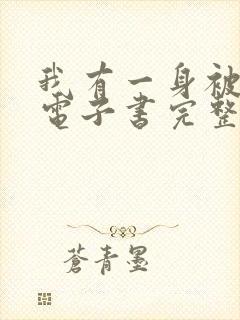 我有一身被
電子書完整
蒼青墨